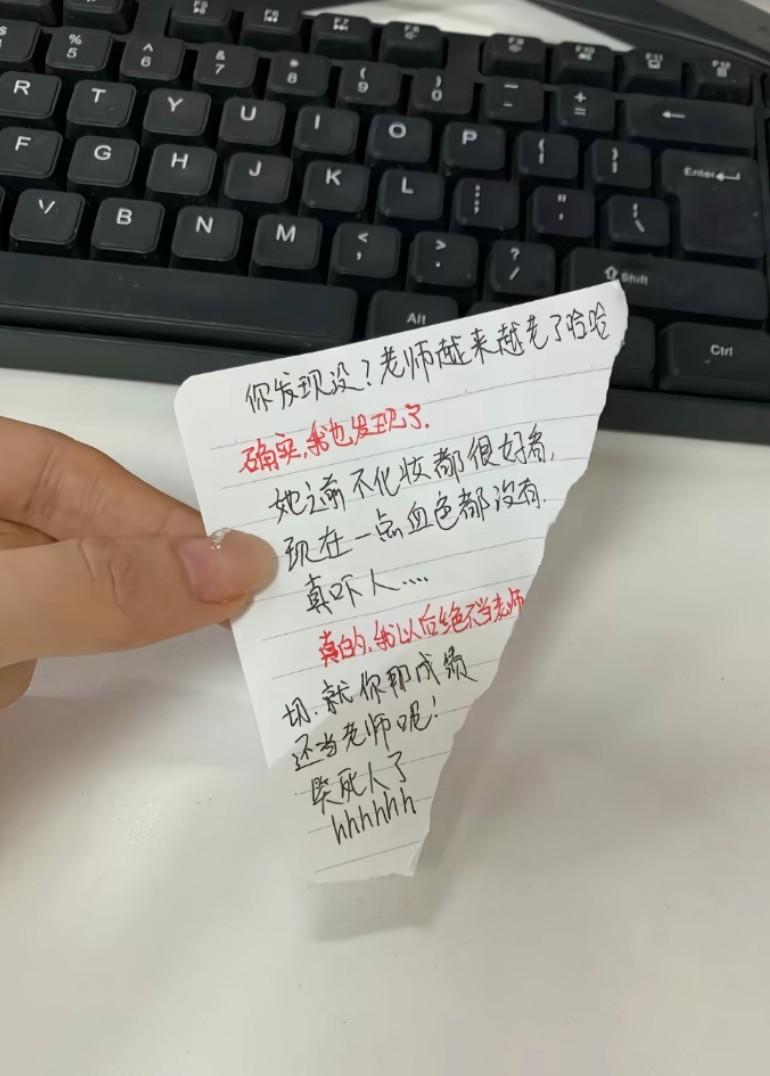 F5
F6
F7
F8
F9
F10
F11
F12
$
%
5
^
6
&
7
*
8
(
9
)
0
—
-
+
=
←
R
T
Y
U
I
O
P
{
[
}
]
Enter
F
G
H
J
K
L
:
;
"
'
|
\
V
B
N
M
<
,
>
.
?
/
Shift
Alt
Ctrl
你发现没?老师越来越老了哈哈
确实,我也发现了.
她之前不化妆都很好看,
现在一点血色都没有.
真吓人....
真的,我以后绝不当老师
切.就你那成绩
还当老师呢!
笑死人了
hhhhhh